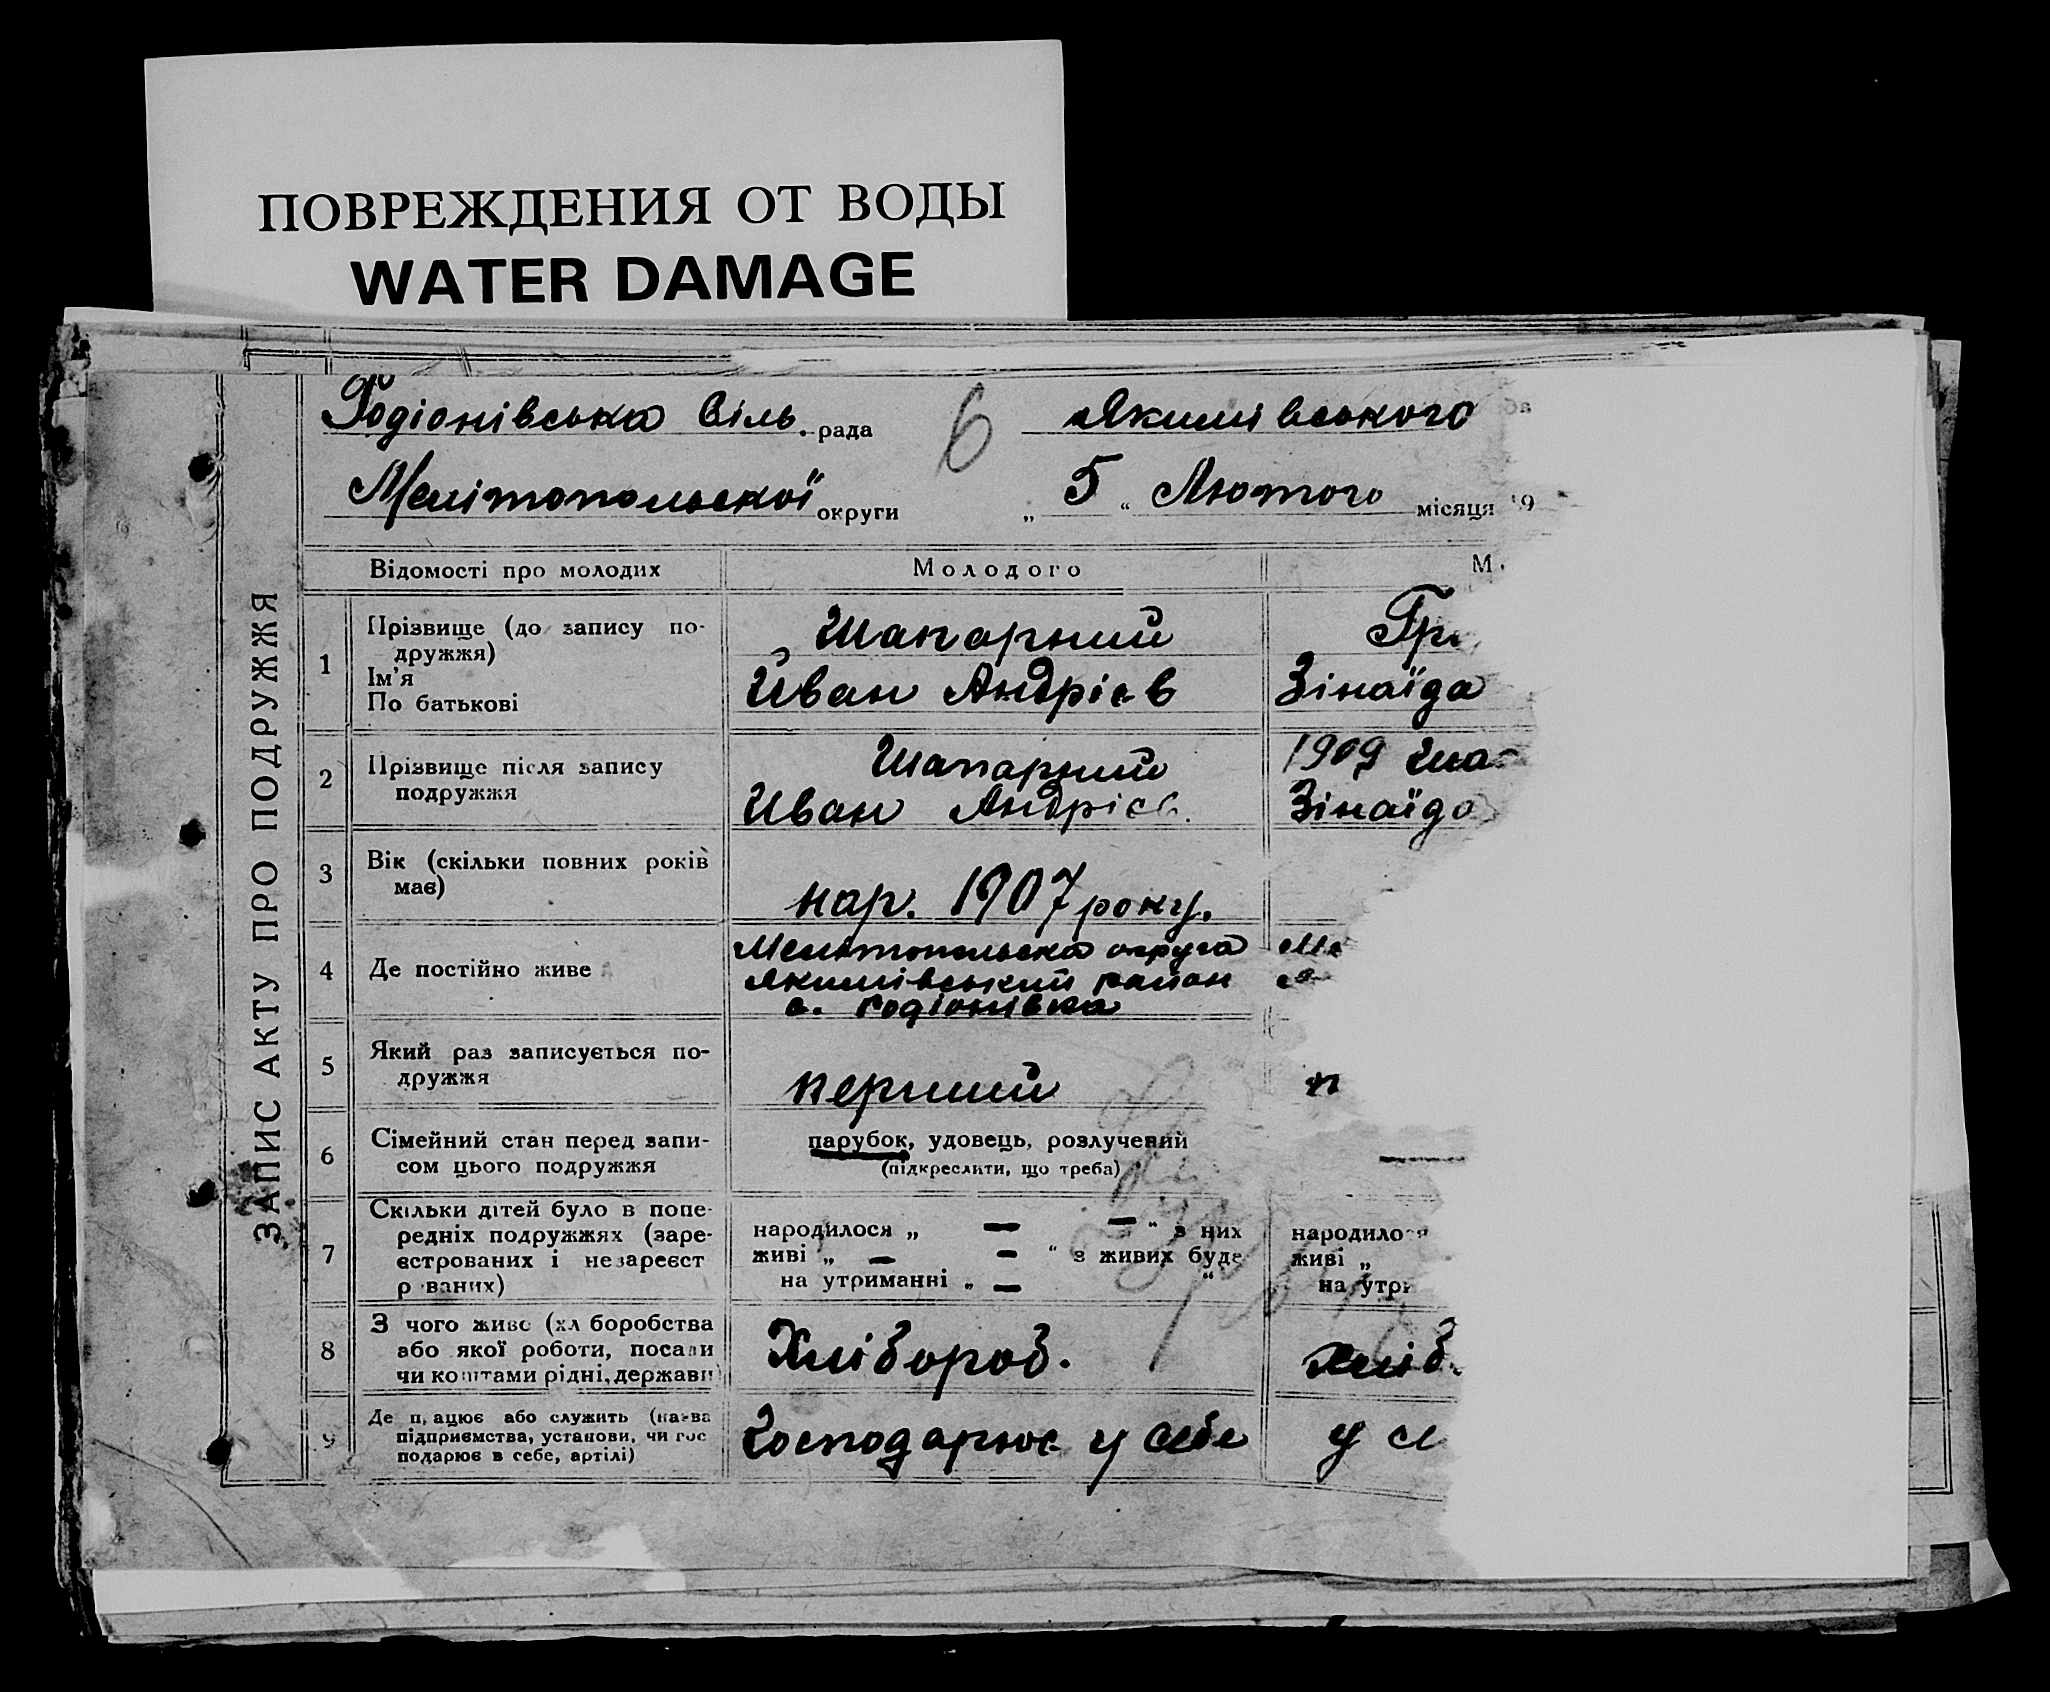 ПОВРЕЖДЕНИЯ ОТ ВОДЫ
WATER DAMAGE
Родіонівська Сіль. рада
6
Якимівського
Мелітопольської округи
„ 5 “ Лютого місяця 19
ЗАПИС АКТУ ПРО ПОДРУЖЖЯ
Відомості про молодих
Молодого
М
1
Прізвище (до запису по-
дружжя)
Ім'я
По батькові
Шапарний
Иван Андрієв
Гр
Зінаїда
2
Прізвище після запису
подружжя
Шапарний
Иван Андрієв.
1909 Ша
Зінаїда
3
Вік (скільки повних років
має)
нар. 1907 року.
4
Де постійно живе
Мелітопольска округа
Якимівський район
с. Родіонівка
Ме
Я
5
Який раз записується по-
дружжя
перший
п
6
Сімейний стан перед запи-
сом цього подружжя
парубок, удовець, розлучений
(підкреслити, що треба)
7
Скільки дітей було в попе-
редніх подружжях (заре-
єстрованих і незареєст
р ваних)
народилося „ — — “ з них
живі „ — — “ з живих буде
на утриманні „ — “
народилося
живі „
на утри
8
З чого живе (хл боробства
або якої роботи, посади
чи коштами рідні, держави)
Хлібороб.
хліб.
9
Де п, ацює або служить (назва
підприємства, установи, чи гос
подарює в себе, артілі)
Господарює у себе
у се